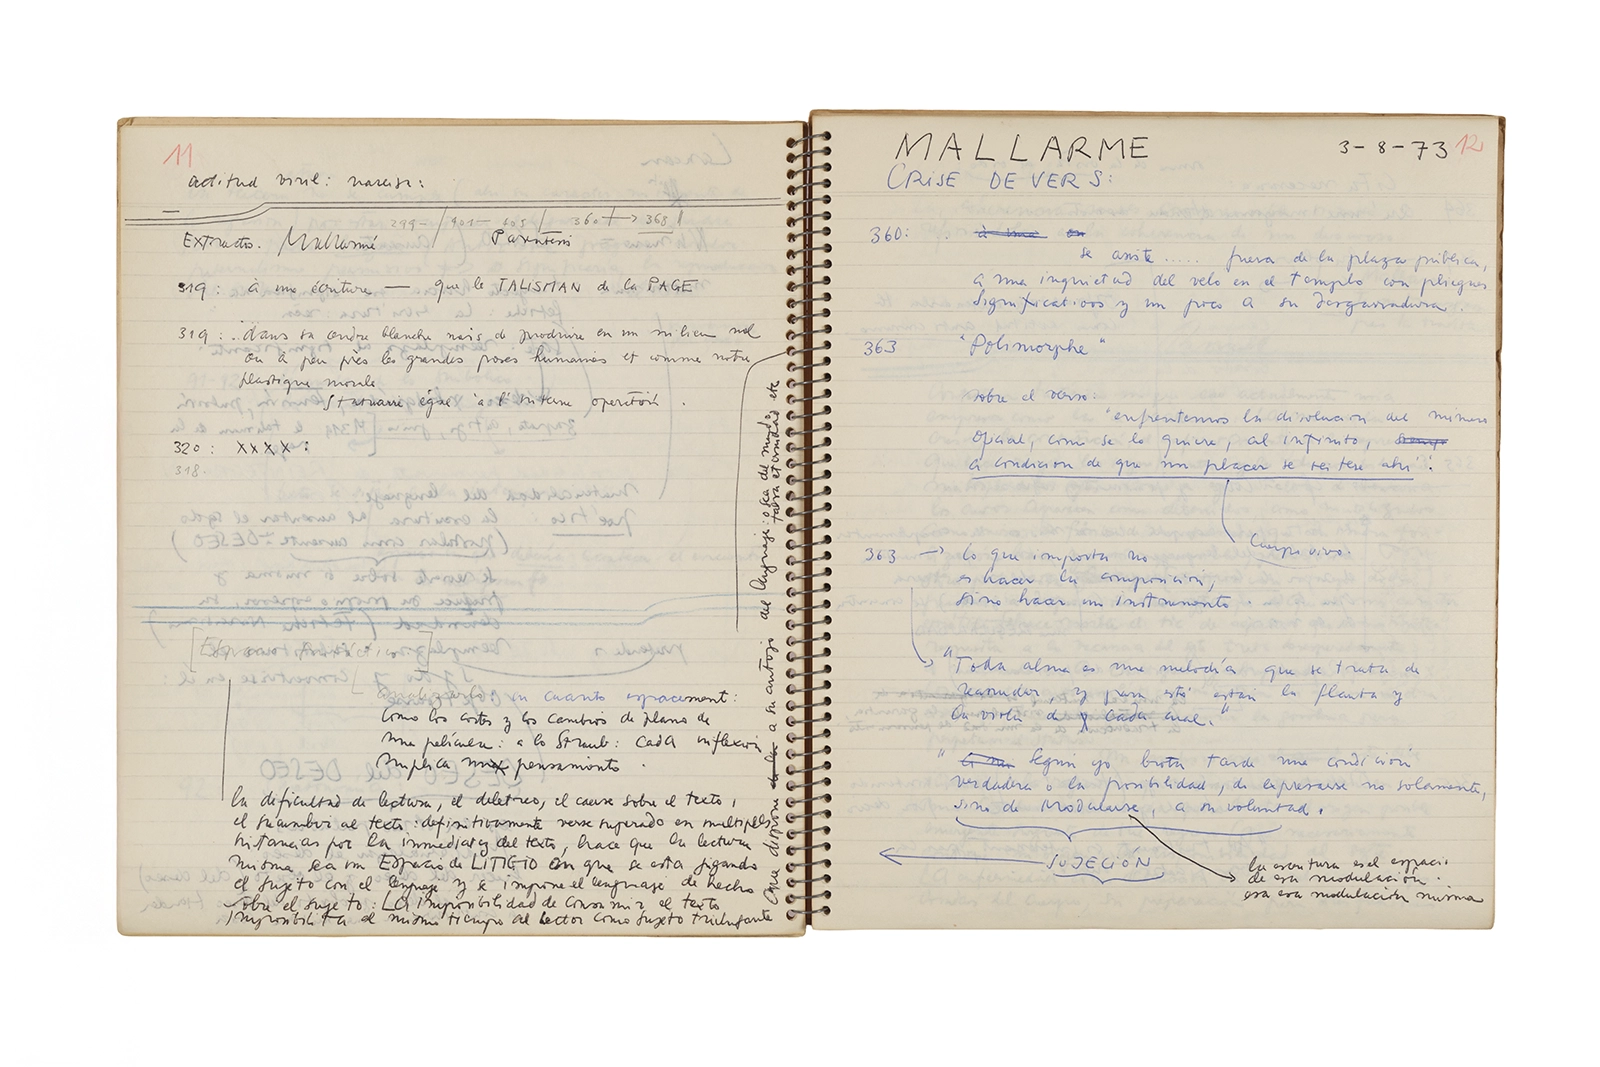 11
actitud viril: narciso:
299- / 401- 405 / 360 → 368
Extracto. Mallarmé Paréntesis
319: à une écriture — que le TALISMAN de la PAGE
319: dans sa cendre blanche mais de produire en un milieu nul
ou à peu près les grandes poses humaines et comme notre
plastique morale
Statuaire égale à l'interne
320: XXXX:
318.
en cuanto espacement:
como los cortes y los cambios de plano de
una película: a lo Straub: cada inflexión
implica un pensamiento.
la dificultad de lectura, el deletreo, el cause sobre el texto,
el sucumbir al texto: definitivamente verse superado en multiples
instancias por la inmediatez del texto, hace que la lectura
misma sea un Espacio de LITIGIO en que se está jugando
el sujeto con el lenguaje y se impone el lenguaje de hecho
sobre el sujeto: La imposibilidad de consumir el texto
imposibilita al mismo tiempo al lector como sujeto triunfante
que dispone a su antojo del lenguaje: o sea del mundo
MALLARME 3-8-73 12
CRISE DE VERS:
360: à une
se asiste..... fuera de la plaza pública,
a una inquietud del velo en el templo con pliegues
significativos y un poco a su desgarradura.
363 "Polimorphe"
sobre el verso:
"enfrentemos la disolución del número
oficial, como se lo quiere, al infinito,
a condición de que un placer se reitere ahí".
Cuerpo vivo.
363 → lo que importa no
es hacer la composición,
sino hacer un instrumento.
"Toda alma es una melodía que se trata de
reanudar, y para esto están la flauta y
la viola de cada cual."
" Según yo brota tarde una condición
verdadera o la posibilidad, de expresarse no solamente,
sino de modularse, a su voluntad.
SUJECIÓN
la escritura es el espacio
de esa modulación.
es esa modulación misma